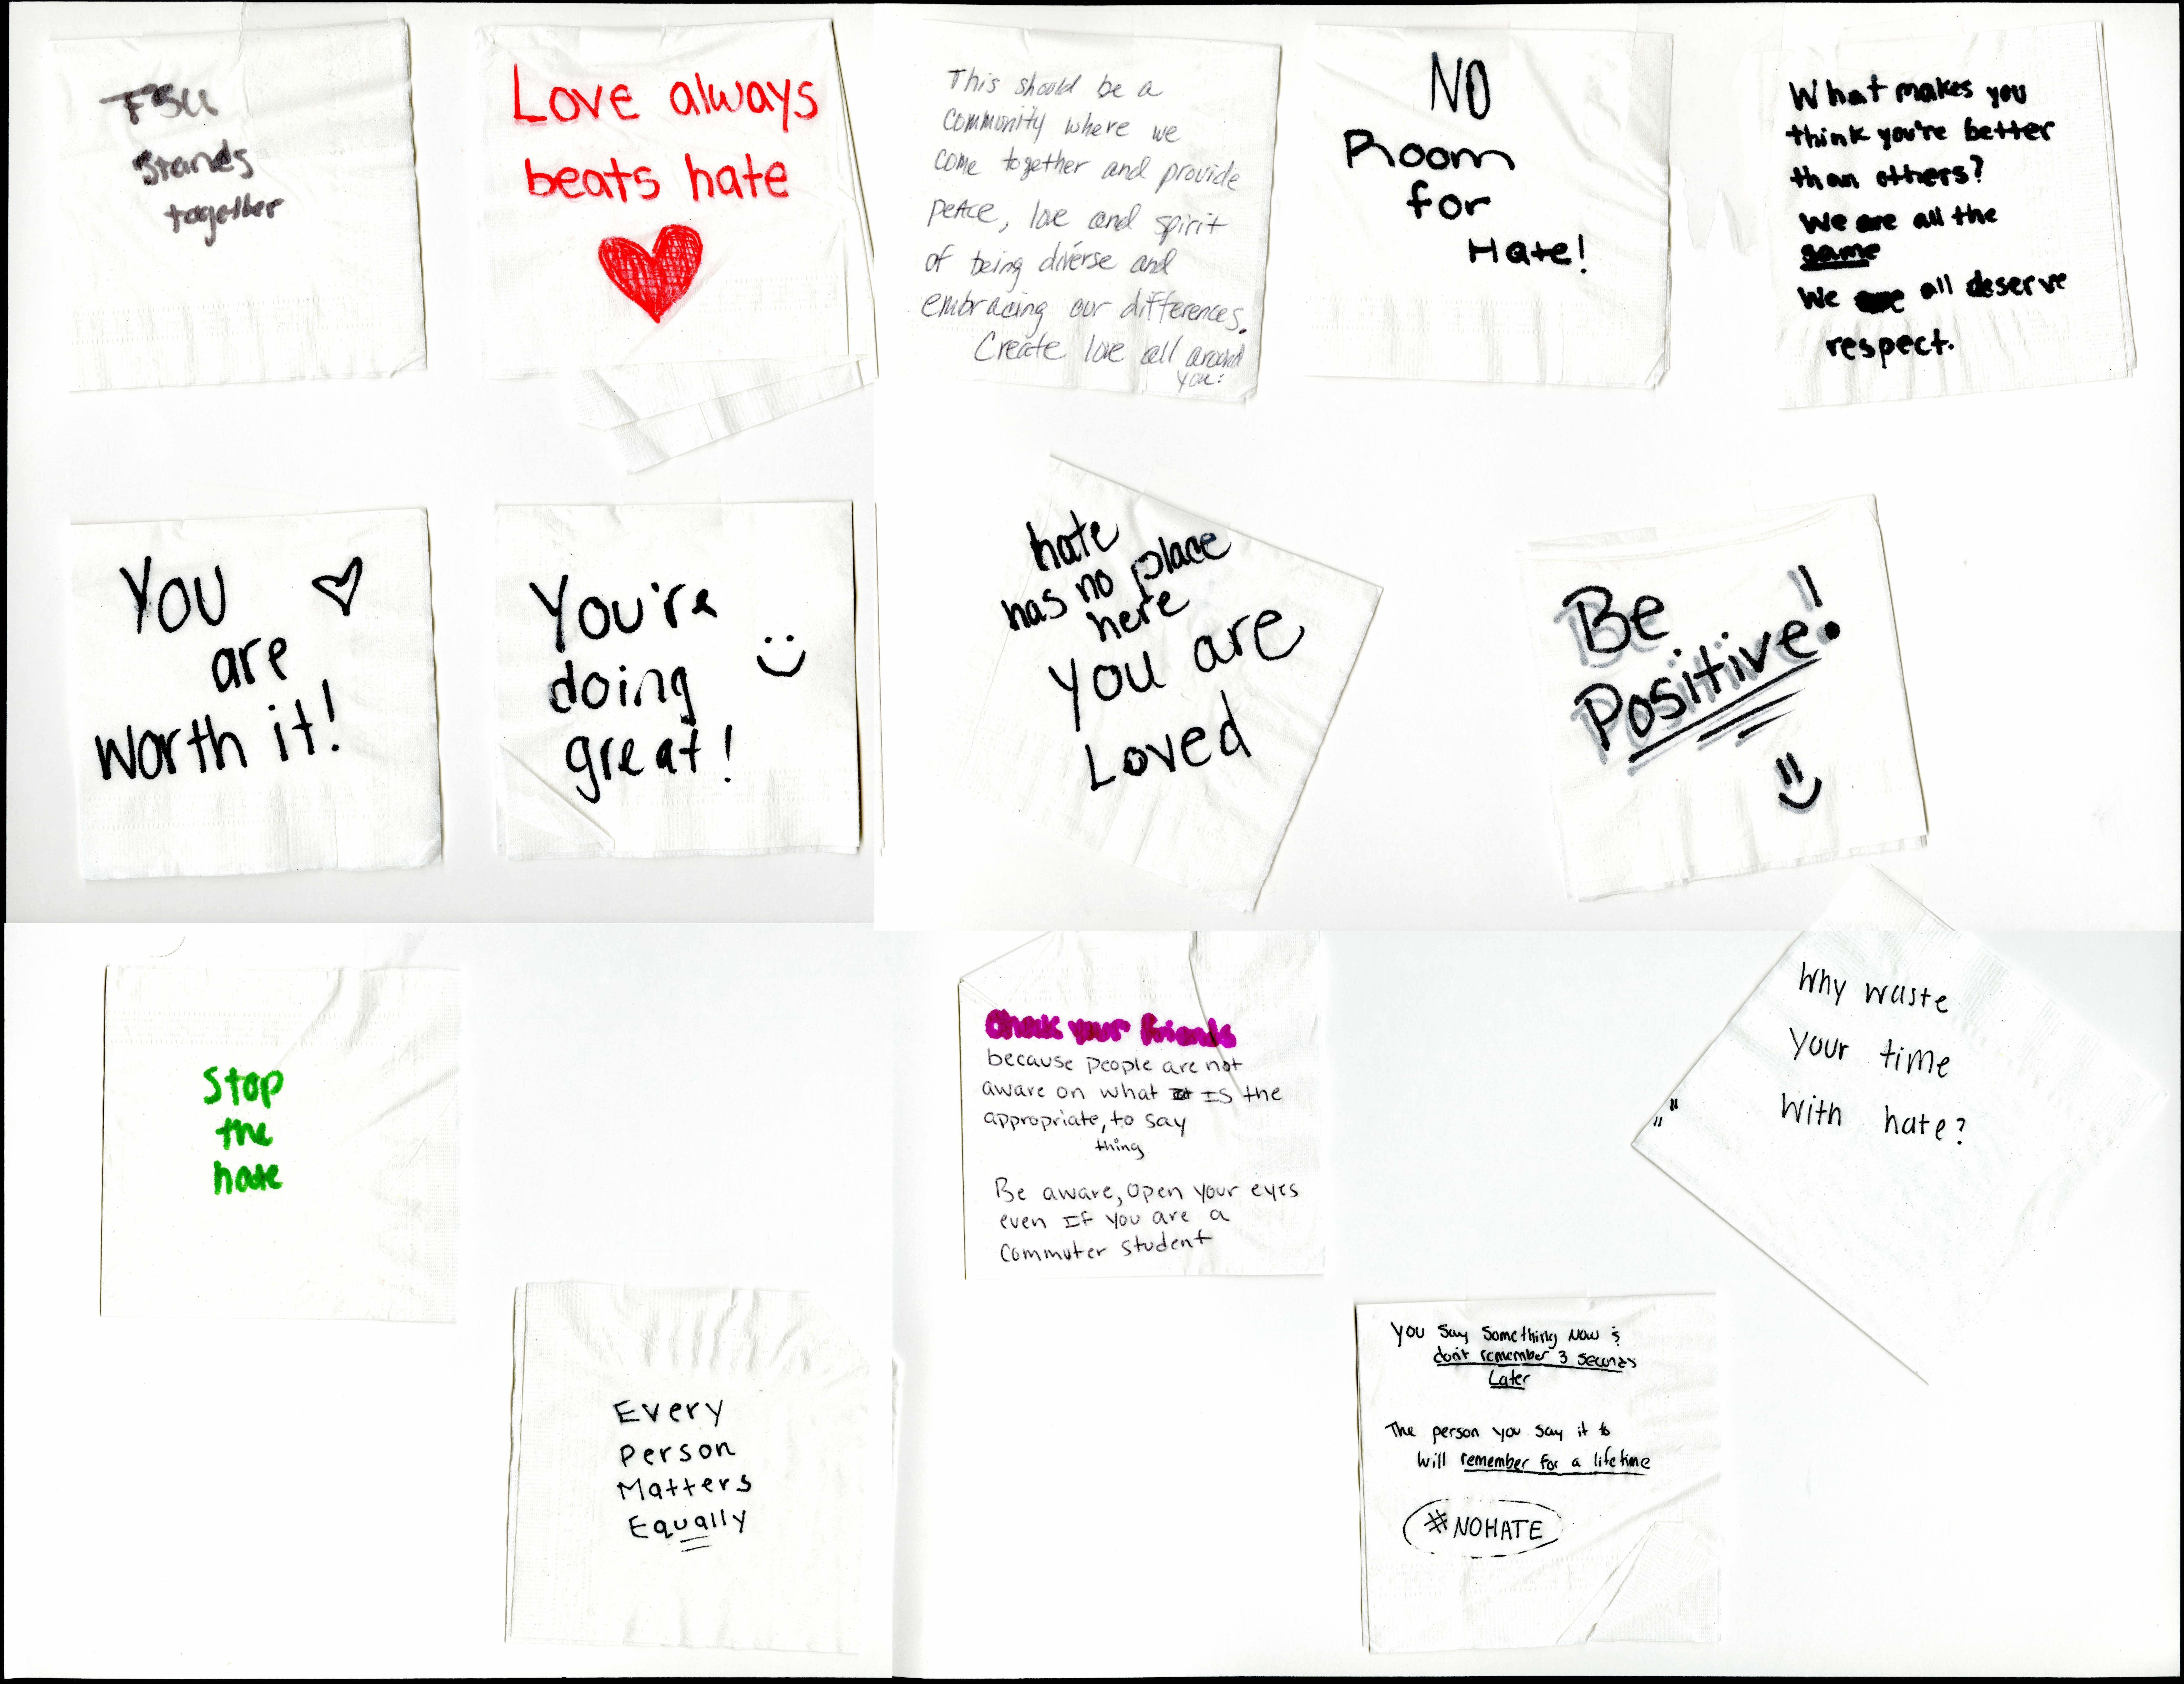 FSU
Stands
together
Love always
beats hate
This should be a
community where we
come together and provide
peace, love and spirit
of being diverse and
embracing our differences.
Create love all around
you:
NO
Room
for
Hate!
What makes you
think you're better
than others?
We are all the
same
We all deserve
respect.
You
are
worth it!
You're
doing
great!
hate
has no place
here
you are
Loved
Be
Positive!
Stop
the
hate
Every
Person
Matters
Equally
Check your friends
because people are not
aware on what is the
appropriate, to say
thing
Be aware, open your eyes
even If you are a
commuter student
Why waste
your time
with hate?
You say something now &
don't remember 3 seconds
Later
The person you say it to
will remember for a lifetime
#NOHATE